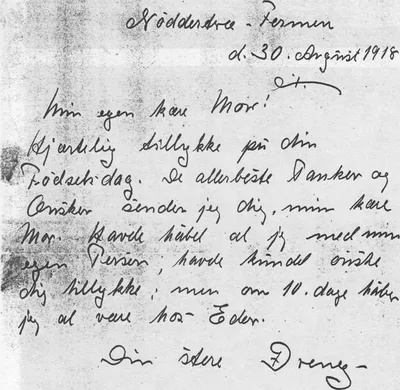 Nødderstræ - Fermen
d. 30. August 1918
Min egen kære Mor!
Hjærtelig tillykke på din
Fødselsdag. De allerbedste Tanker og
Ønsker sender jeg dig, min kære
Mor. Havde håbet at jeg med min
egen Person, havde kundet ønske
dig tillykke; men om 10. dage håber
jeg at være hos Eder.
Din store Dreng -